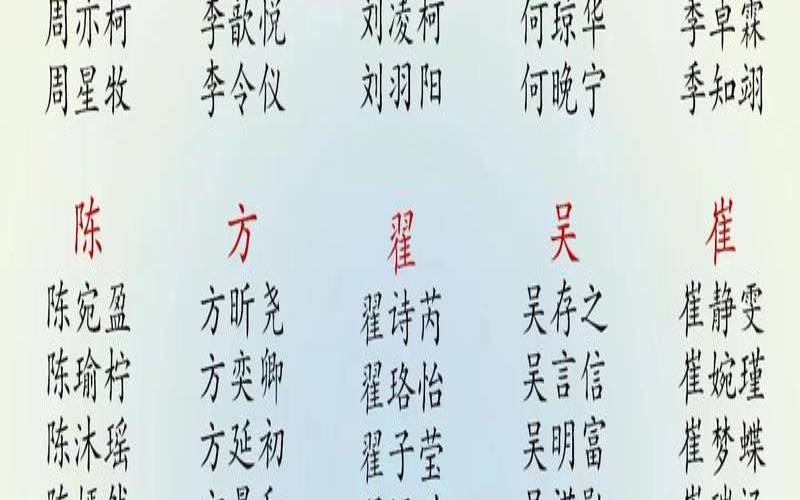 周亦柯 李歆悦 刘凌柯 何琼华 季卓霖
周星牧 李令仪 刘羽阳 何晚宁 季知翊
陈 方 翟 吴 崔
陈宛盈 方昕尧 翟诗芮 吴存之 崔静雯
陈瑜柠 方奕卿 翟珞怡 吴言信 崔婉瑾
陈沐瑶 方延初 翟子莹 吴明富 崔梦蝶